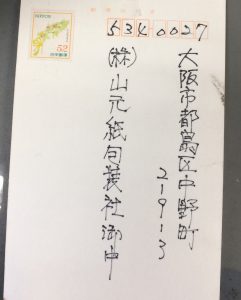 NIPPON
52
日本郵便
郵便はがき
534 0027
大阪市都島区中野町
2-9-13
(株)山元紙包装社御中